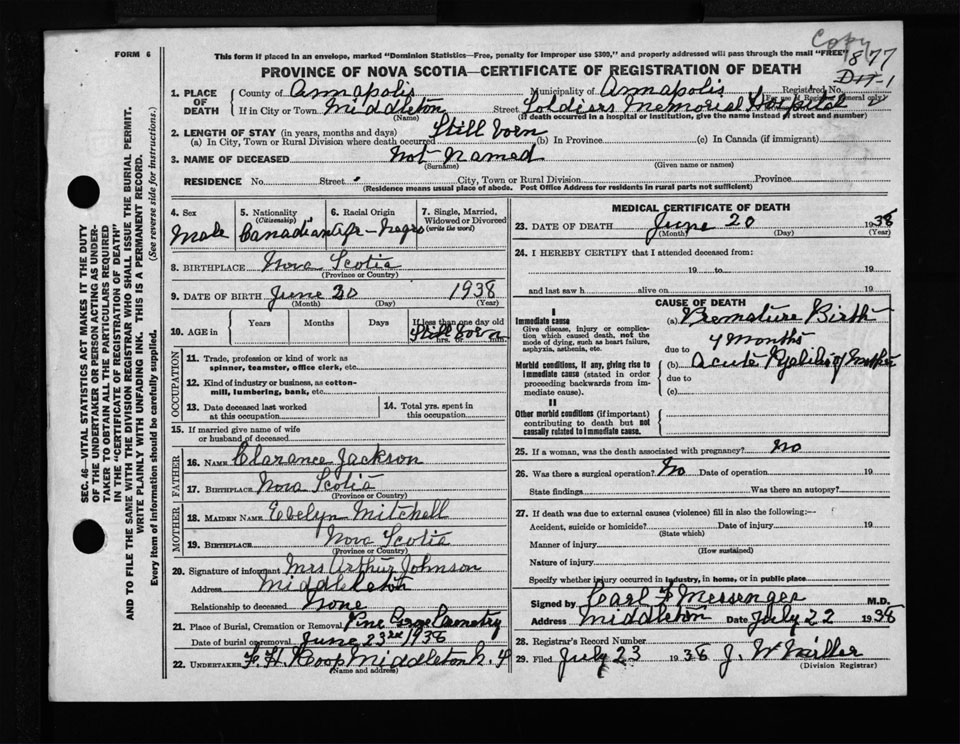 Copy
1877
Dit-1
FORM 6
This form if placed in an envelope, marked "Dominion Statistics—Free, penalty for improper use $300," and properly addressed will pass through the mail "FREE"
PROVINCE OF NOVA SCOTIA—CERTIFICATE OF REGISTRATION OF DEATH
1. PLACE OF DEATH
County of Annapolis Municipality of Annapolis Registered No.
(For use of Registrar General only)
If in City or Town Middleton Street Soldiers Memorial Hospital
(Name) (If death occurred in a hospital or institution, give the name instead of street and number)
2. LENGTH OF STAY (in years, months and days) Still born
(a) In City, Town or Rural Division where death occurred (b) In Province (c) In Canada (if immigrant)
3. NAME OF DECEASED Not Named
(Surname) (Given name or names)
RESIDENCE No. Street City, Town or Rural Division Province
(Residence means usual place of abode. Post Office Address for residents in rural parts not sufficient)
4. Sex
Male
5. Nationality
(Citizenship)
Canadian
6. Racial Origin
Afr-Negro
7. Single, Married,
Widowed or Divorced
(write the word)
8. BIRTHPLACE Nova Scotia
(Province or Country)
9. DATE OF BIRTH June 20 1938
(Month) (Day) (Year)
10. AGE in
Years Months Days If less than one day old
Still born
hrs. or min.
OCCUPATION
11. Trade, profession or kind of work as
spinner, teamster, office clerk, etc.
12. Kind of industry or business, as cotton-
mill, lumbering, bank, etc.
13. Date deceased last worked
at this occupation
14. Total yrs. spent in
this occupation
15. If married give name of wife
or husband of deceased
FATHER
16. NAME Clarance Jackson
17. BIRTHPLACE Nova Scotia
(Province or Country)
MOTHER
18. MAIDEN NAME Evelyn Mitchell
19. BIRTHPLACE Nova Scotia
(Province or Country)
20. Signature of informant Mrs Arthur Johnson
Address Middleton
Relationship to deceased None
21. Place of Burial, Cremation or Removal Pine Grove Cemetry
Date of burial or removal June 23rd 1938
22. UNDERTAKER F. H. Roop Middleton N. S
(Name and address)
MEDICAL CERTIFICATE OF DEATH
23. DATE OF DEATH June 20 1938
(Month) (Day) (Year)
24. I HEREBY CERTIFY that I attended deceased from:
19 to 19
and last saw h alive on 19
CAUSE OF DEATH
I
Immediate cause
Give disease, injury or complica-
tion which caused death, not the
mode of dying, such as heart failure,
asphyxia, asthenia, etc.
(a) Premature Birth
7 months
due to
Morbid conditions, if any, giving rise to
immediate cause (stated in order
proceeding backwards from im-
mediate cause).
(b) Acute Pyelitis of Mother
due to
(c)
II
Other morbid conditions (if important)
contributing to death but not
causally related to immediate cause.
25. If a woman, was the death associated with pregnancy? No
26. Was there a surgical operation? No Date of operation 19
State findings Was there an autopsy?
27. If death was due to external causes (violence) fill in also the following:—
Accident, suicide or homicide? Date of injury 19
(State which)
Manner of injury
(How sustained)
Nature of injury
Specify whether injury occurred in industry, in home, or in public place
Signed by Carl F Messenger M.D.
Address Middleton Date July 22 1938
28. Registrar's Record Number
29. Filed July 23 1938 J. W Miller
(Division Registrar)
SEC. 46—VITAL STATISTICS ACT MAKES IT THE DUTY
OF THE UNDERTAKER OR PERSON ACTING AS UNDER-
TAKER TO OBTAIN ALL THE PARTICULARS REQUIRED
IN THE "CERTIFICATE OF REGISTRATION OF DEATH"
AND TO FILE THE SAME WITH THE DIVISION REGISTRAR WHO SHALL ISSUE THE BURIAL PERMIT.
WRITE PLAINLY WITH UNFADING INK. THIS IS A PERMANENT RECORD.
Every item of information should be carefully supplied. (See reverse side for instructions.)